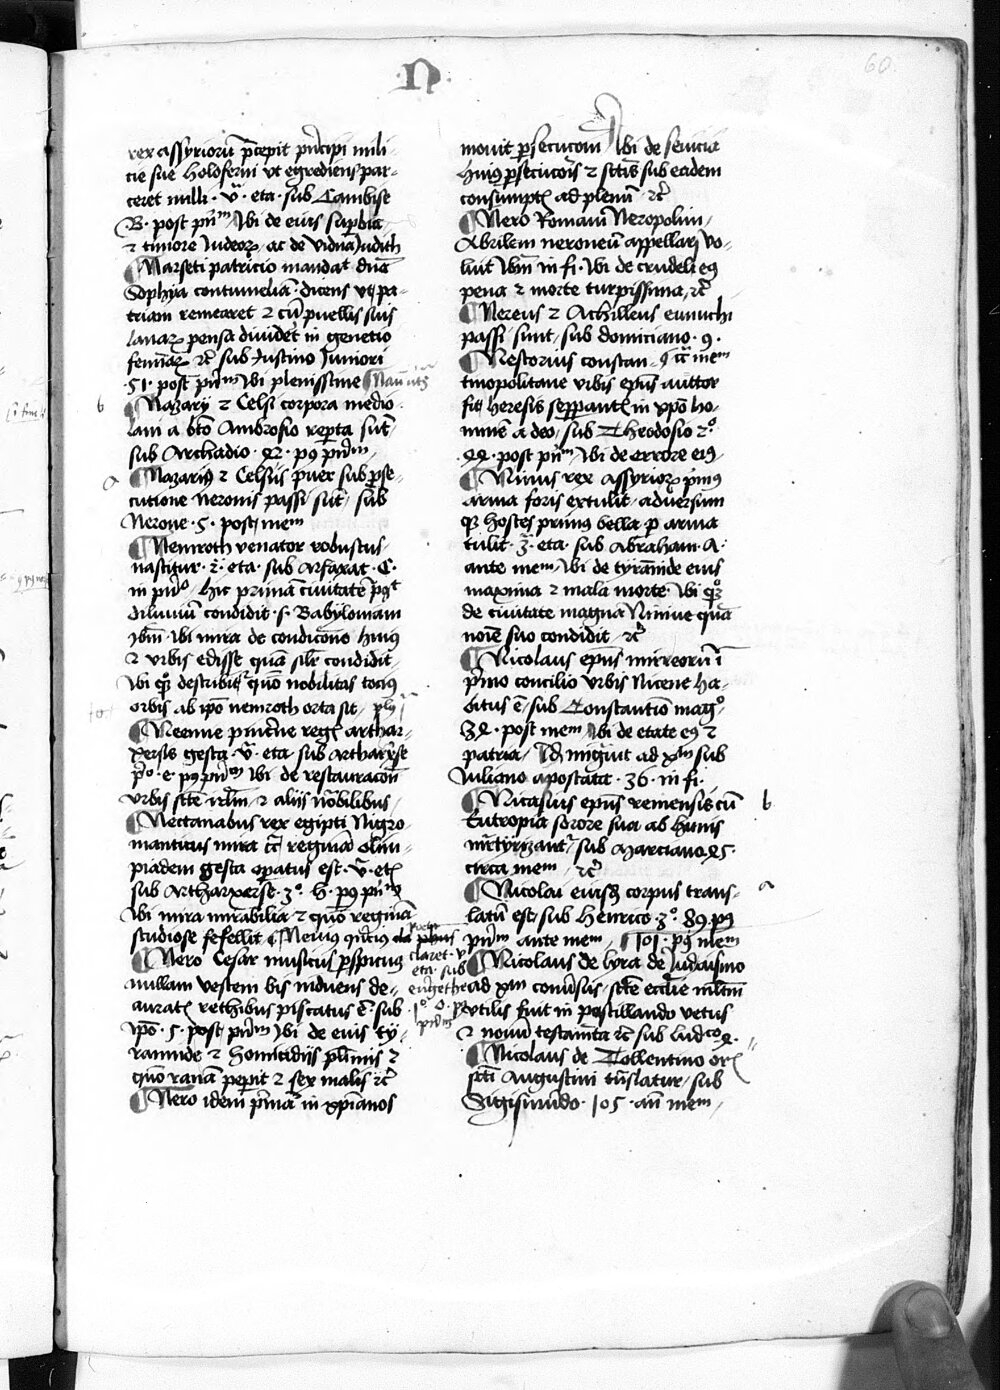 N
60
rex assyrioru͞ p͞cepit p͞ncipi mili-
cie sue Holoferni ut egrediens par-
ceret nulli · v͞ · eta · sub Cambise
B · post p͞m͞ Ubi de eius sup͞bia
⁊ timore Judeoꝝ ac de vidua Judith
¶ Narseti patricio mandat d͞na
Sophya contumelia͞ · dicens ut pa-
triam remearet ⁊ cu͞ puellis suis
lanaꝝ pensa divider͞ in genetio
femi͞aꝝ ⁊c͞ sub Justino Juniori
· 51 · post p͞m͞ Ubi plenissime
b
¶ Nazarij ⁊ Celsi corpora medio
lani a b͞to Ambrosio rep͞ta su͞t
sub Archadio · 22 · p9 p͞m͞
a
¶ Nazari9 ⁊ Celsus puer sub p͞se-
cutione neronis passi su͞t, sub
Nerone · 5 · post mem
¶ Nemroth venator robustus
nascitur · 2͞ · eta · sub Arfaxat · C ·
in p͞no · hic primam civitate͞ p͞9t
diluviu͞ condidit · s · Babyloniam
Ub͞m · Ubi mira de condic͞one hui9
⁊ urbis edisse qua͞ sil͞r condidit
Ubi q͞ꝫ describit͞ quo͞ nobilitas toci9
orbis ab ip͞o nemroth orta sit
¶ Neemie pincerne reg͞ arthar-
xersis gesta · v͞ · eta · sub Artharx͞se
p͞o · e · p9 p͞m͞ Ubi de restaurac͞on͞
urbis s͞c͞te ir͞l͞m ⁊ aliis nobilibus
¶ Nectanabus rex egipti Nigro-
manticus mira c͞c͞ regina͞ olim-
piadem gesta op͞atus est · v͞ · et͞
sub Artharxerse · 3o · h · p9 p͞m͞
Ubi mira mirabilia ⁊ quo͞ regina͞
studiose fefellit
claret · v
eta · sub
¶ Nero Cesar musicus p͞spicuus
nullam vestem bis induens de-
aurat͞ rethibus piscatus e͞ · sub
ip͞o · 5 · post p͞m͞ Ubi de eius ty-
rannide ⁊ homicidiis pl͞imis ⁊
quo͞ rana͞ pep͞it ⁊ sex malis ⁊c͞
¶ Nero idem p͞ma͞ in xp͞ianos
movit p͞secuc͞om Ubi de sevicia
hui9 p͞secuc͞ois ⁊ s͞c͞tis sub eadem
consumpt͞ ad plenu͞ ⁊c͞
¶ Nero Romam Neropolim,
Abrilem neroneu͞ appellari vo-
luit Ub͞m in fi · Ubi de crudeli e9
pena ⁊ morte turpissima, ⁊c͞
¶ Nereus ⁊ Achilleus eunuchi
passi sunt, sub domiciano · 9 ·
¶ Nestorius constan-
tinopolitane urbis ep͞us auctor
fit heresis sep͞ant͞ in xp͞o ho-
minem a deo, sub Theodosio 2o
· 22 · post p͞m͞ Ubi de errore ei9
¶ Ninus rex assyrioꝝ p͞m9
arma foris extulit, adversum
q͞ꝫ hostes prim9 bella p͞ arma
tulit · 3͞ · eta · sub Abraham · A ·
ante mem, Ubi de tyra͞nide eius
maxima ⁊ mala morte · Ubi q͞ꝫ
de civitate magna Ninive qua͞
no͞ie suo condidit, ⁊c͞
¶ Nicolaus ep͞us mirreoru͞ i͞
p͞mo concilio urbis Nicene ha-
bitus e͞, sub Constantino mago
32 · post mem Ubi de etate e9 ⁊
patria
Juliano apostata · 36 · in fi ·
¶ Nicasius ep͞us remensis cu͞
b
Eutropia sorore sua ab hunis
m͞rtyrizant͞, sub Marciano 25 ·
circa mem, ⁊c͞
¶ Nicolai eiusdꝫ corpus trans-
a
latu͞ est, sub Henrico · 3o · 89 · p9
p͞m͞ ante mem, 101 · p9 mem
¶ Nicolaus de lyra de Judaismo
ad xp͞m conv͞sus, s͞c͞te eccl͞ie m͞lt͞m
utilis fuit in postillando vetus
⁊ novu͞ testam͞ta ⁊c͞ sub Lud͞co 2 ·
¶ Nicolaus de Tollentino or͞
s͞c͞ti Augustini tr͞nslatur, sub
Sigismundo · 105 · an͞ mem,